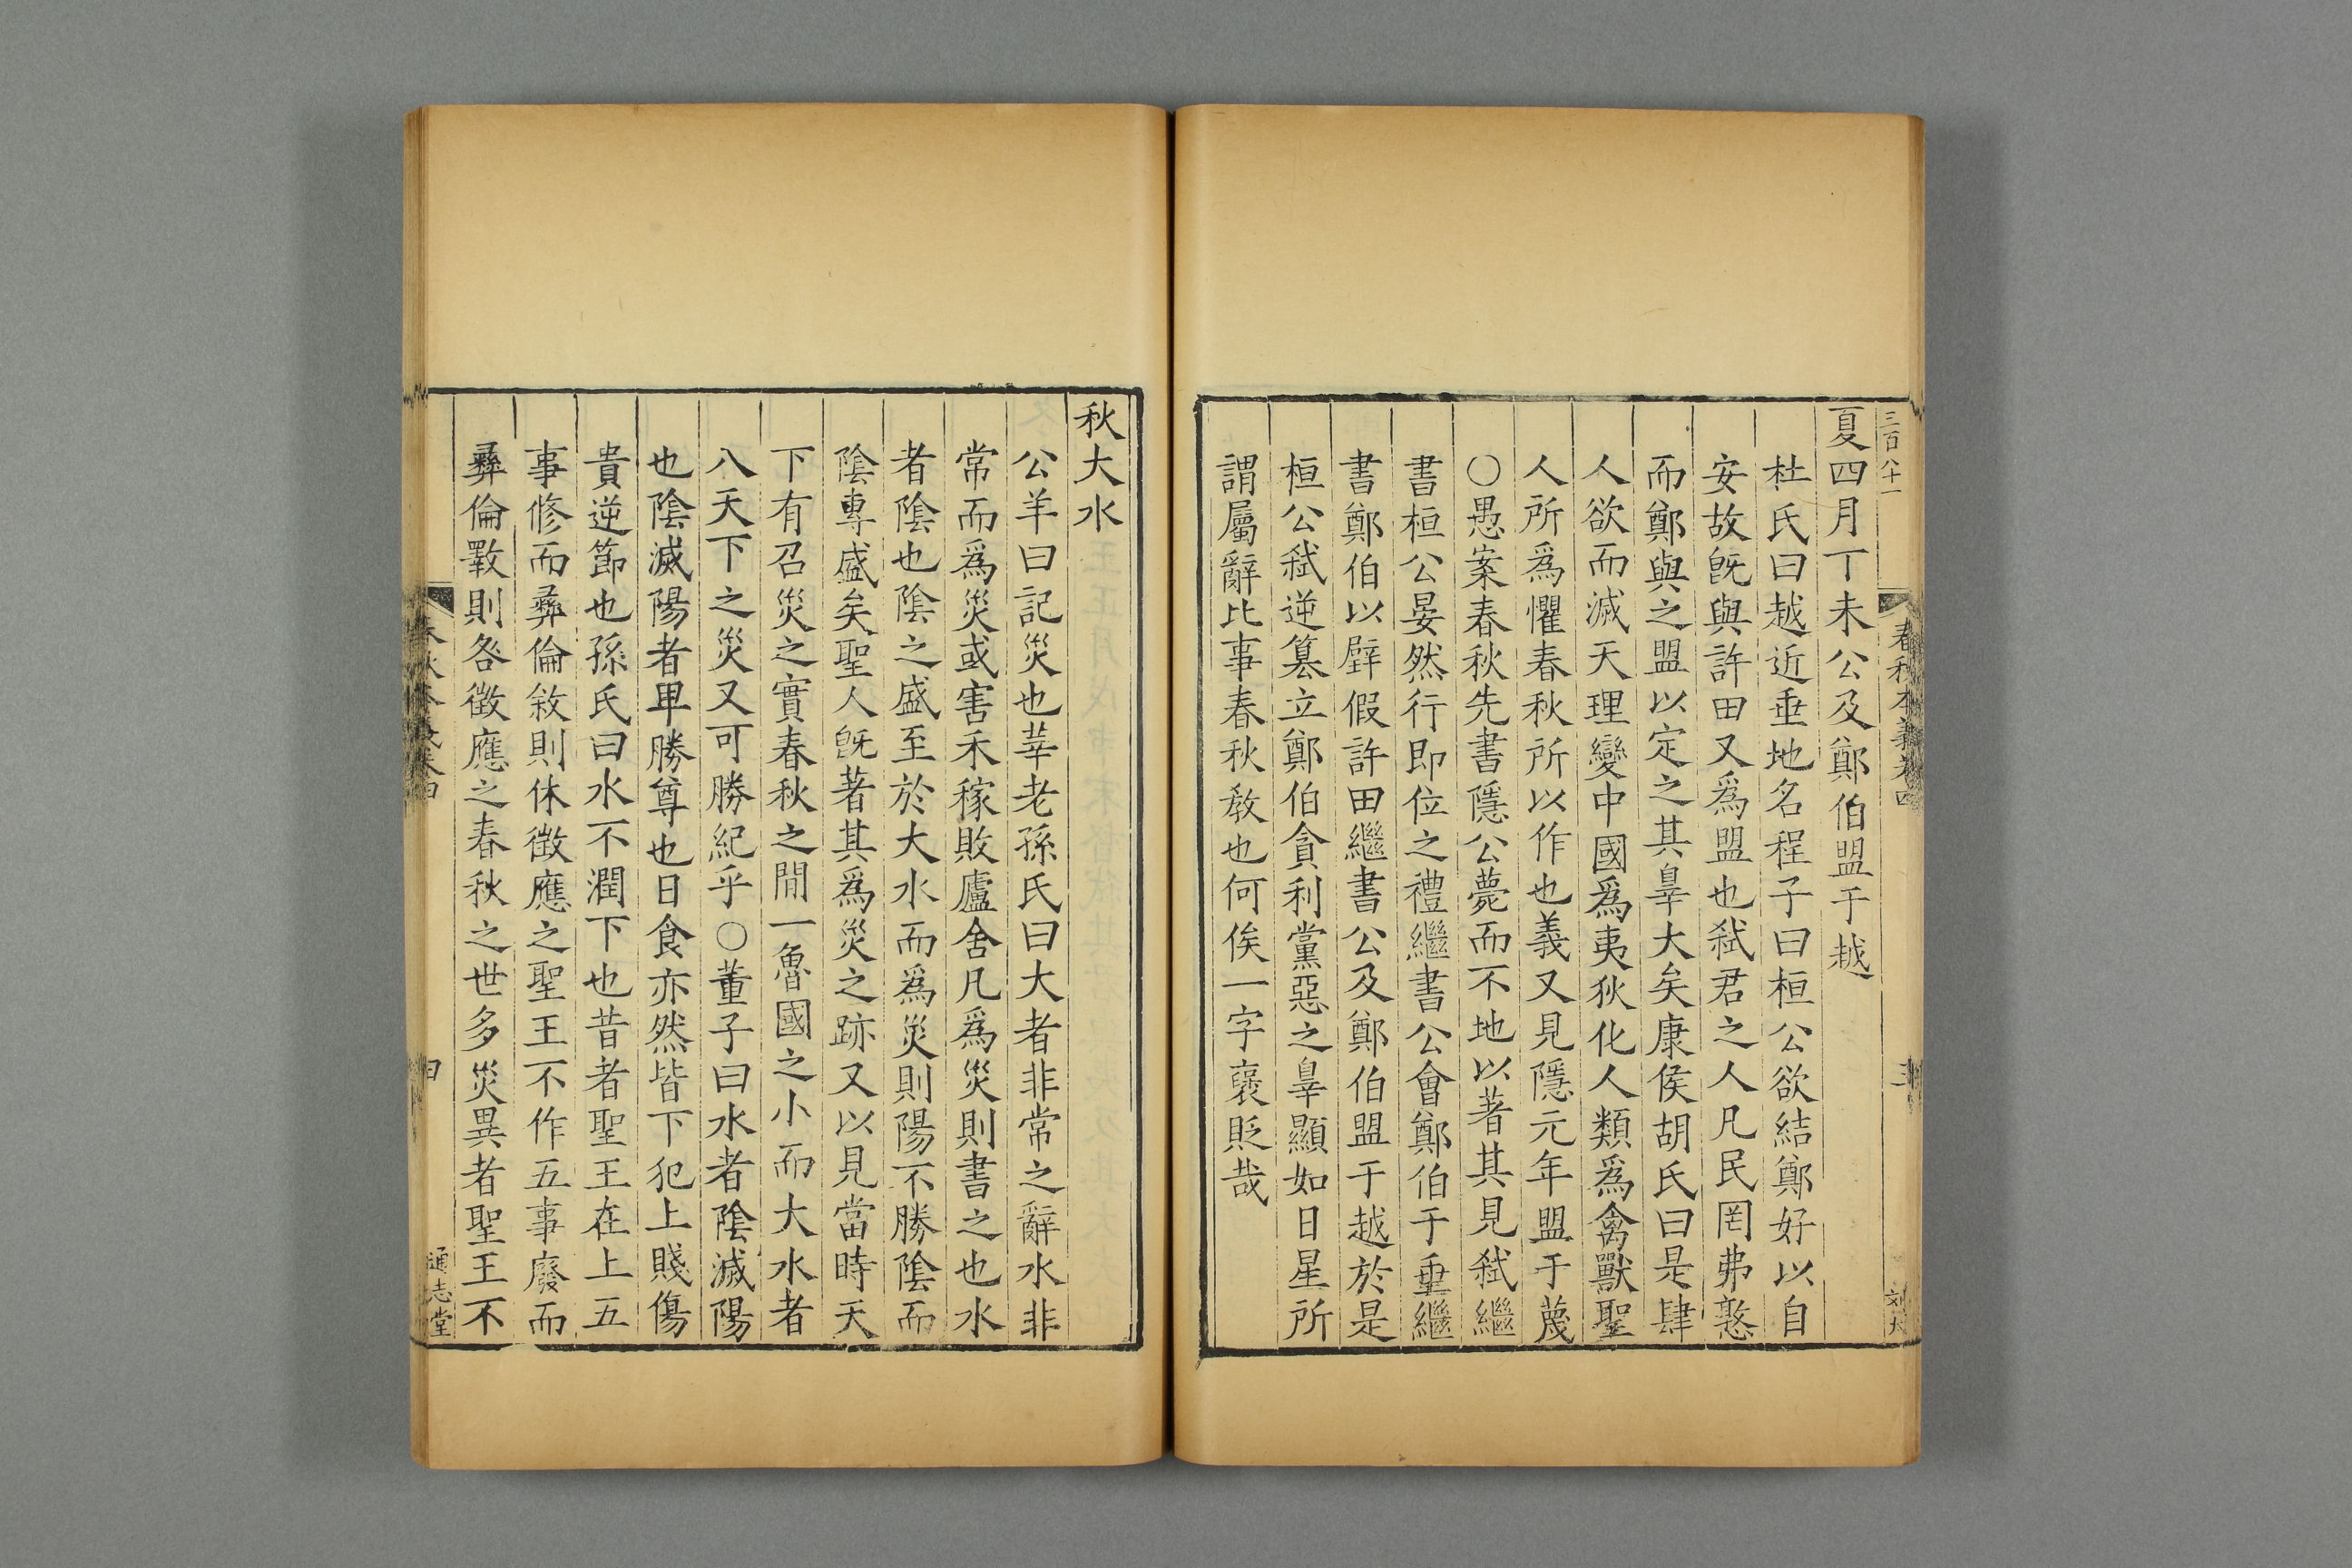 三百八十一
春秋本義卷四
三
夏四月丁未公及鄭伯盟于越
杜氏曰越近垂地名程子曰桓公欲結鄭好以自
安故旣與許田又爲盟也弑君之人凡民罔弗憝
而鄭與之盟以定之其辠大矣康侯胡氏曰是肆
人欲而滅天理變中國爲夷狄化人類爲禽獸聖
人所爲懼春秋所以作也義又見隱元年盟于蔑
〇愚案春秋先書隱公薨而不地以著其見弑繼
書桓公晏然行即位之禮繼書公會鄭伯于垂繼
書鄭伯以璧假許田繼書公及鄭伯盟于越於是
桓公弑逆篡立鄭伯貪利黨惡之辠顯如日星所
謂屬辭比事春秋敎也何俟一字襃貶哉
秋大水
公羊曰記災也莘老孫氏曰大者非常之辭水非
常而爲災或害禾稼敗廬舍凡爲災則書之也水
者陰也陰之盛至於大水而爲災則陽不勝陰而
陰專盛矣聖人旣著其爲災之跡又以見當時天
下有召災之實春秋之閒一魯國之小而大水者
八天下之災又可勝紀乎〇董子曰水者陰滅陽
也陰滅陽者卑勝尊也日食亦然皆下犯上賤傷
貴逆節也孫氏曰水不潤下也昔者聖王在上五
事修而彞倫敘則休徵應之聖王不作五事廢而
彞倫斁則咎徵應之春秋之世多災異者聖王不
四
通志堂